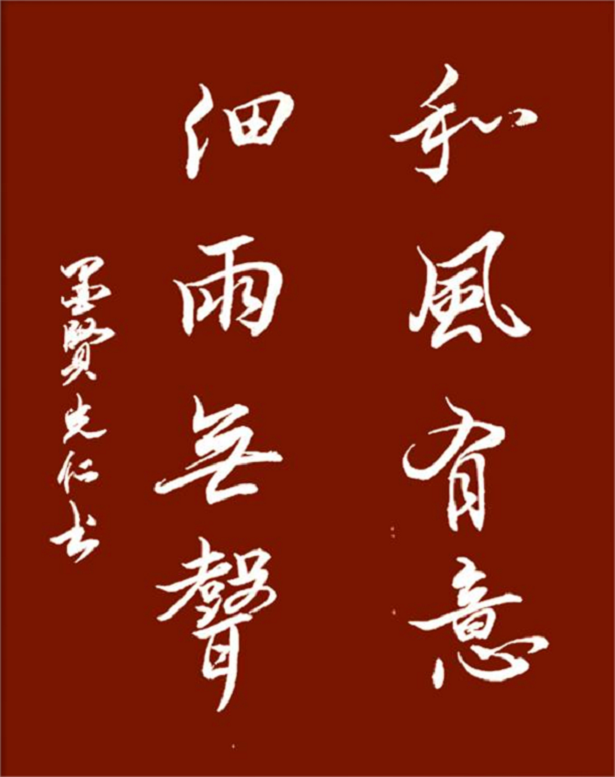 和風有意
細雨無聲
墨賢先仁书